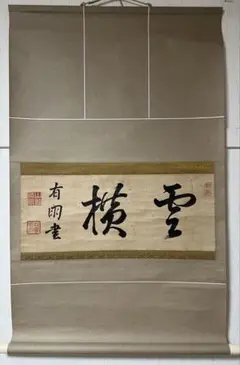 雲横
有朋書